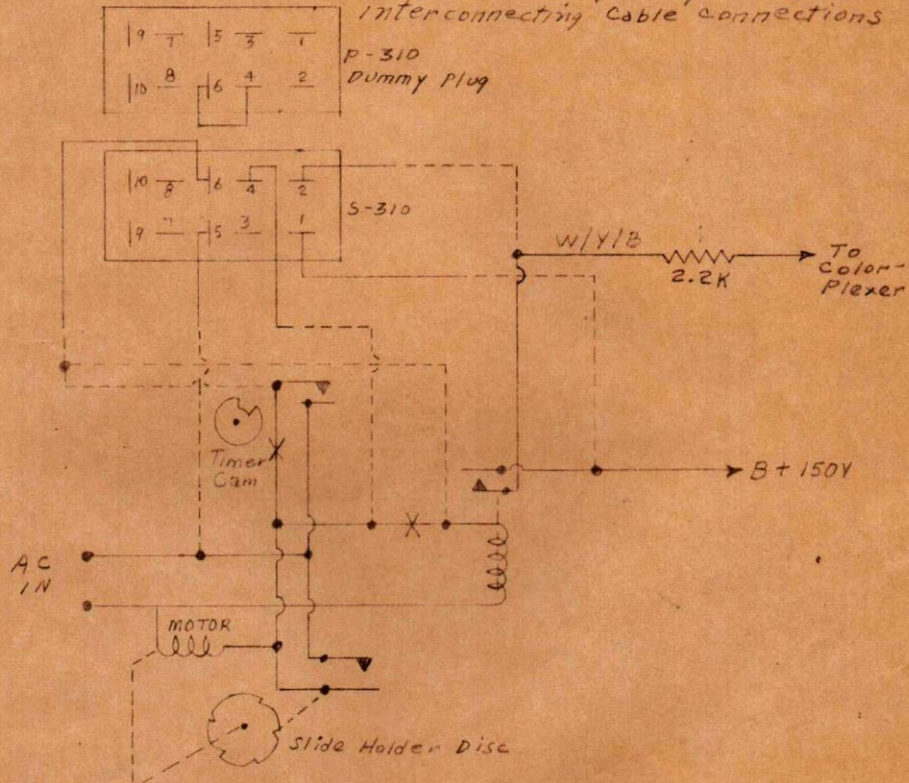 Interconnecting Cable Connections
9 7 5 3 1
P-310
Dummy Plug
10 8 6 4 2
10 8 6 4 2
S-310
9 7 5 3 1
W/Y/B
2.2K
To
Color-
Plexer
Timer
Cam
B+ 150V
AC
IN
MOTOR
Slide Holder Disc